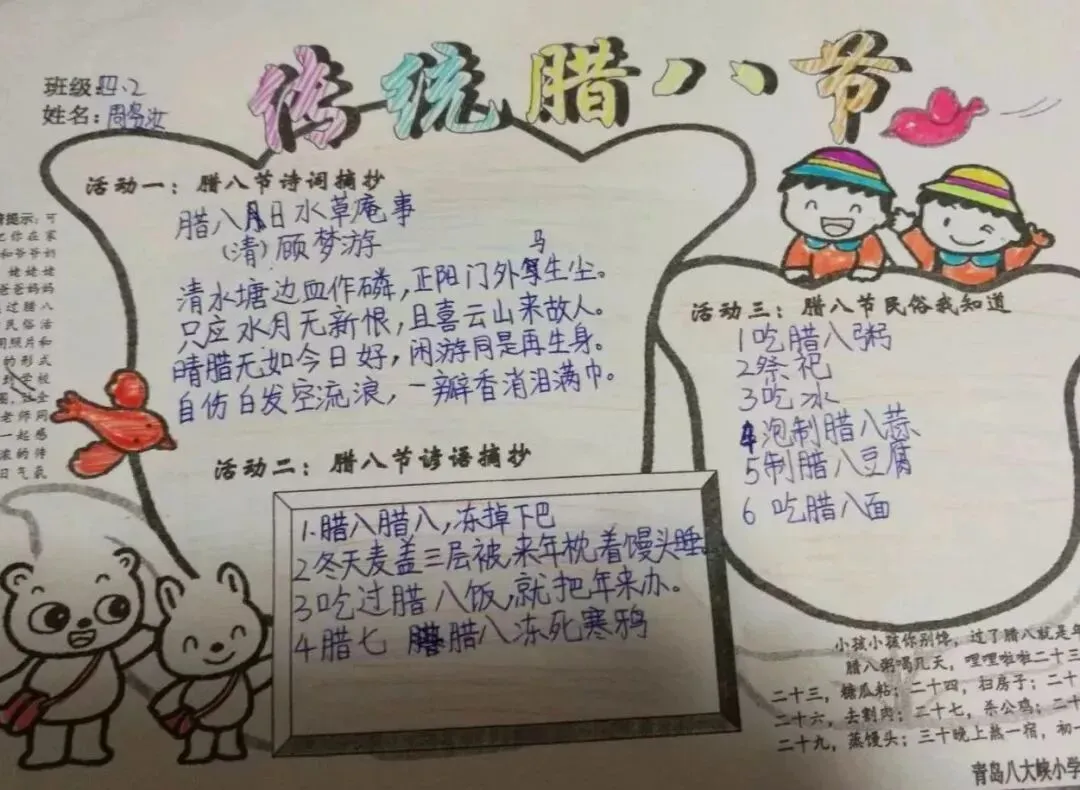 传统腊八节
班级:四.2
姓名:周
活动一：腊八节诗词摘抄
腊八日水草庵事
(清)顾梦游
清水塘边血作磷，正阳门外马生尘。
只应水月无新恨，且喜云山来故人。
晴腊无如今日好，闲游同是再生身。
自伤白发空流浪，一瓣香消泪满巾。
提示：可
你在家
和爷爷奶
姥姥姥
爸爸妈妈
过腊八
民俗活
用照片和
的形式
学校
老师同
一起感
浓的传
日气氛
活动二：腊八节谚语摘抄
1.腊八腊八,冻掉下巴
2冬天麦盖三层被,来年枕着馒头睡.
3吃过腊八饭,就把年来办。
4腊七 腊八冻死寒鸦
活动三：腊八节民俗我知道
1吃腊八粥
2祭祀
3吃冰
4泡制腊八蒜
5制腊八豆腐
6 吃腊八面
小孩小孩你别馋，过了腊八就是年
腊八粥喝几天，哩哩啦啦二十三
二十三，糖瓜粘；二十四，扫房子；二十
二十六，去割肉；二十七，杀公鸡；二十
二十九，蒸馒头；三十晚上熬一宿，初一
青岛八大峡小学